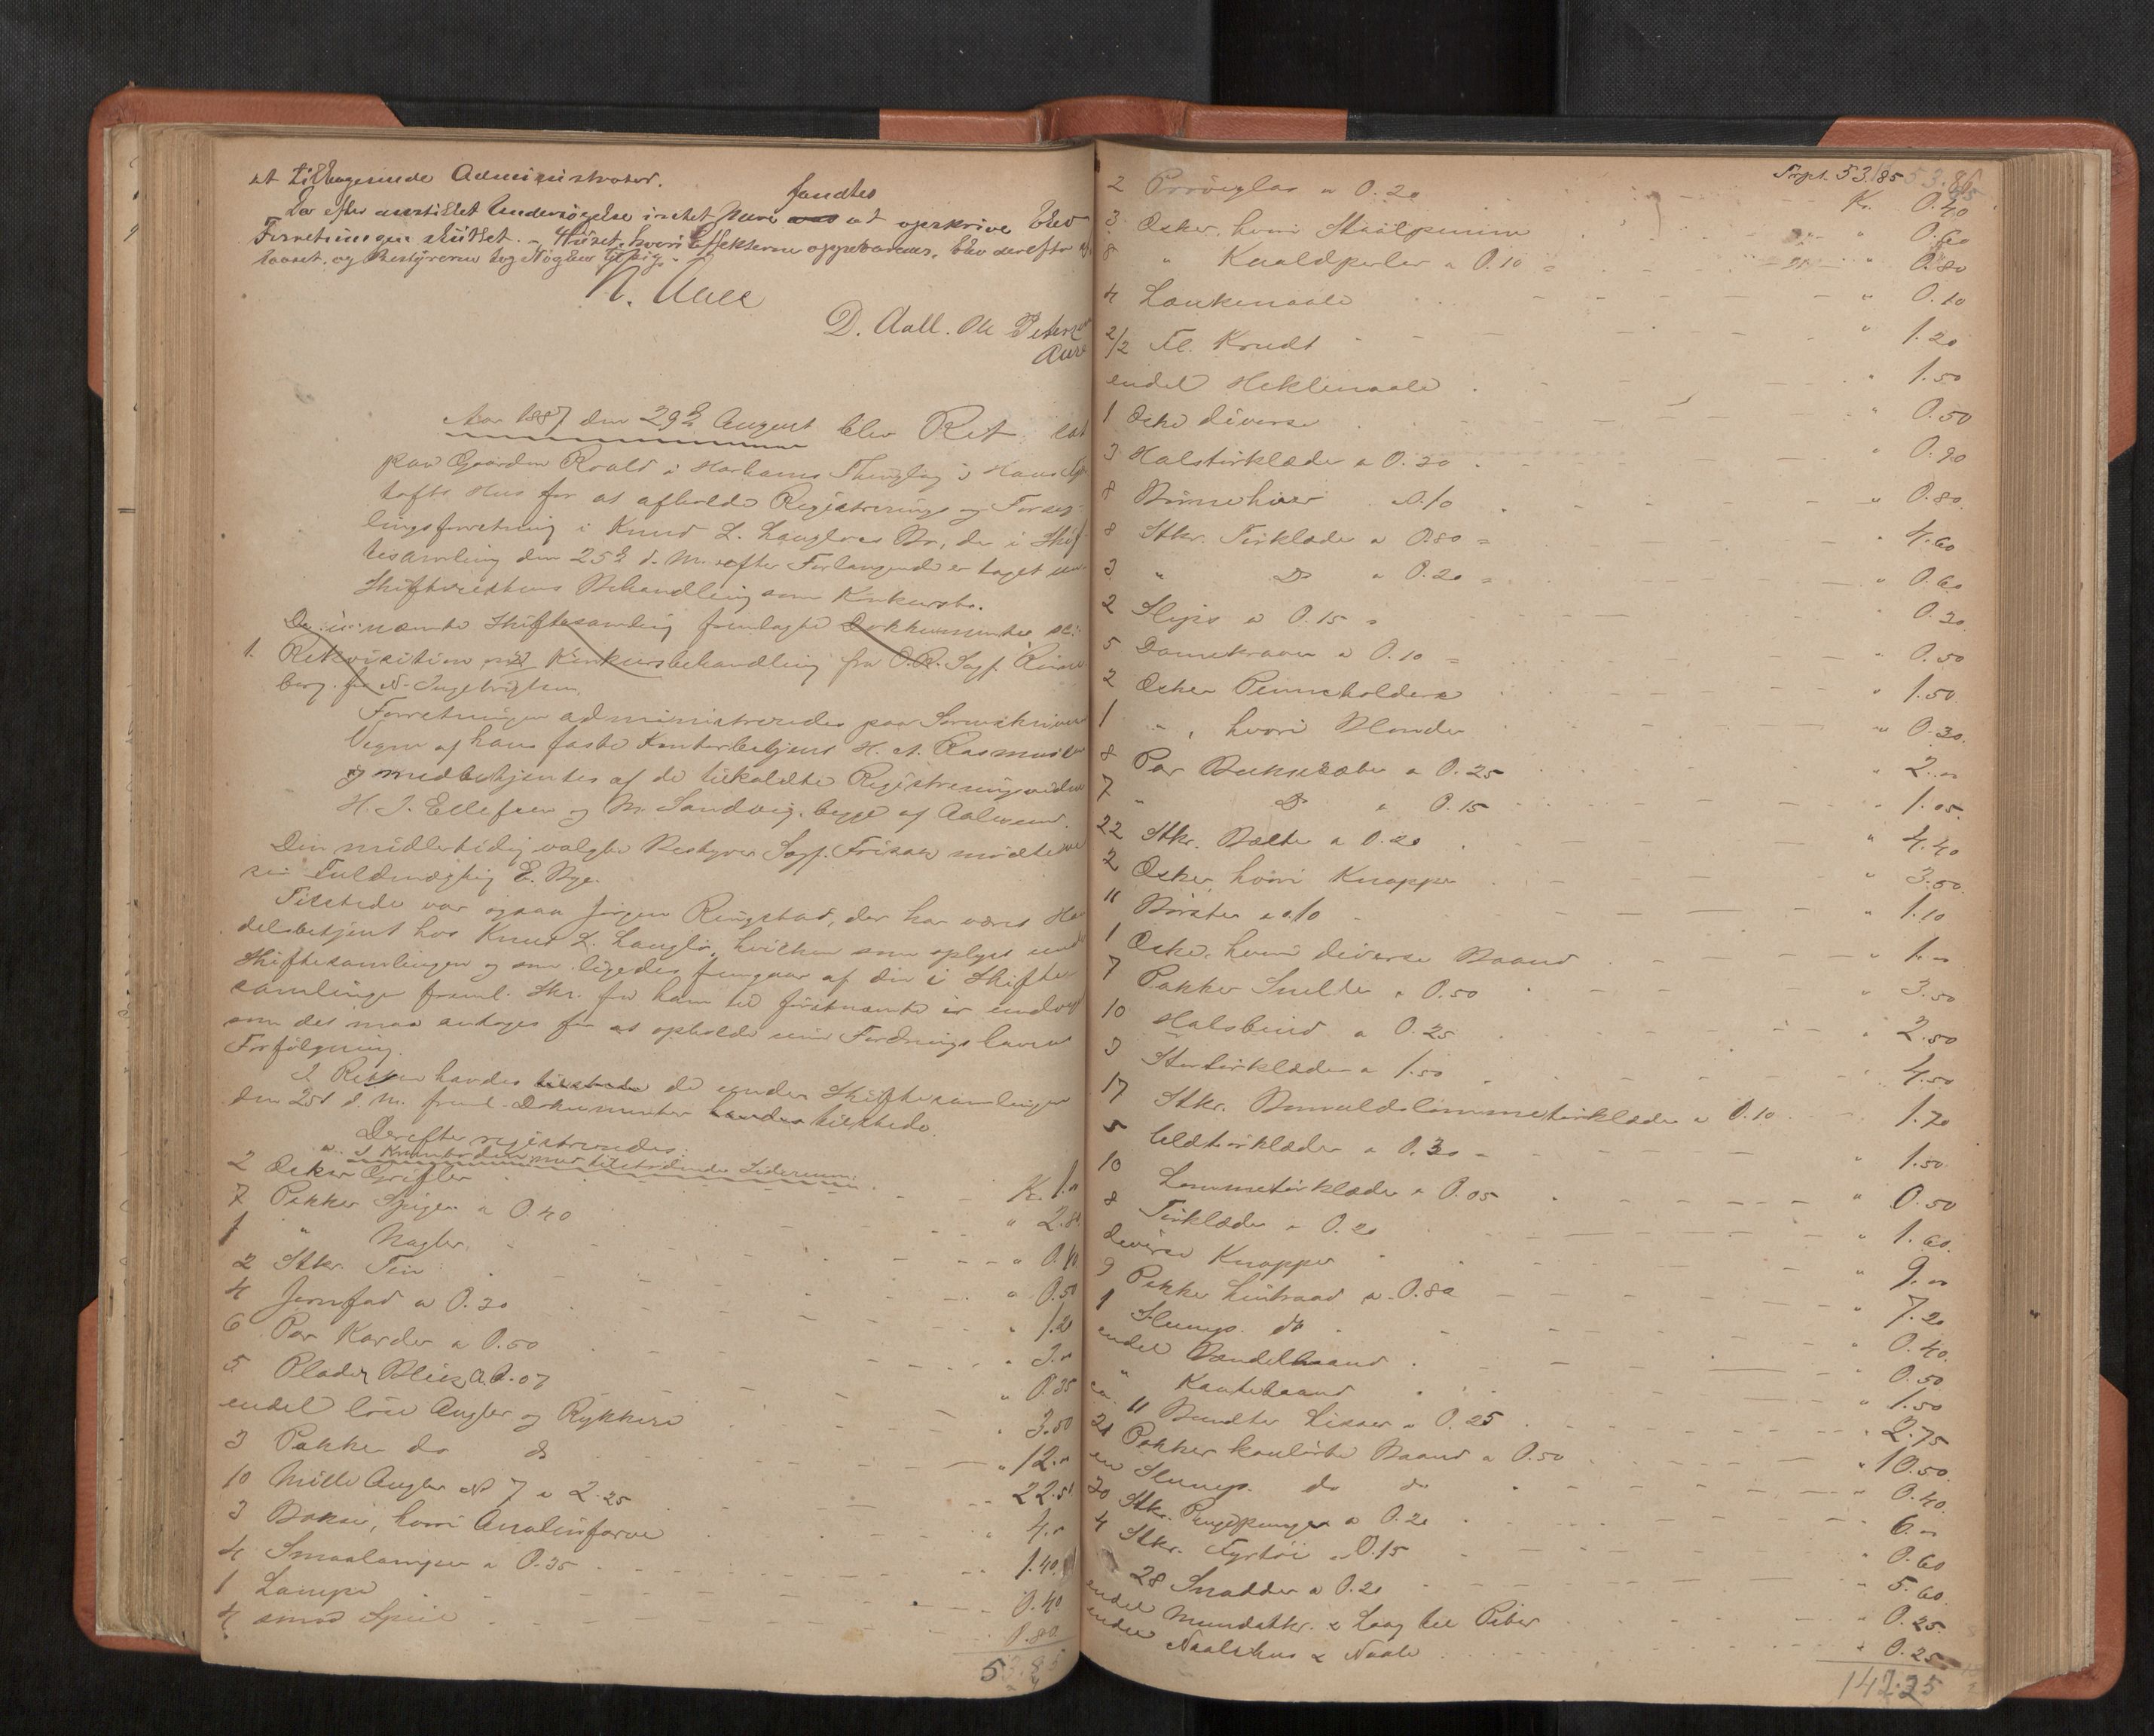 at tilbagesende Administrator.
Da efter anstillet Undersøgelse intet mere fandtes at opskrive blev
Forretningen sluttet. - Huset, hvori Effekterne oppevares, blev derefter
laaset, og Bestyreren tog Nøglen til sig.
N. Aall
D. Aall. Ole Petersen
Aure
Aar 1887 den 29de August blev Ret sat
paa Gaarden Roald i Harhams Thinglag i Hans
tofts Hus for at afholde Registrerings og Forseg-
lingsforretning i Knud L. Langløes Bo, der i Skif-
tesamling den 25de d. M. efter Forlangende er taget un-
Skifterettens Behandling som Konkursbo.
De i nævnte Skiftesamling fremlagte Dokkumenter
1. Rekvisition med Konkursbehandling fra O.R. Sagf.
berg. for N. Ingebrigtsen.
Forretningen administreredes paa Sorenskriver
Vegne af hans faste Kontorbetjent H. A. Rasmus
og medbetjentes af de tilkaldte Registreringsvidner
H. J. Ellefsen og M. Sandvig, begge af Aalesund.
Den midlertidig valgte Bestyrer Sagf. Frisak mødte ved
sin Fuldmægtig E. Bye.
Tilstede var ogsaa Jørgen Ringstad, der har været Han-
delsbetjent hos Knud L. Langlø, hvilken som oplyst under
Skiftesamlingen og som ligeledes fremgaar af den i Skifte-
samlingen freml. Skr. fra ham til førstnævnte er undveget
som det maa antages for at opholde sine Fordringshavere
Forfølgning.
I Retten havdes de under Skiftesamlingen
den 25d d. M. freml. Dokumenter tilstede.
Derefter registreredes:
a. I Kramboden
2 Æsker Grifler - Kr. 1.„
7 Pakker Spiger a 0.40 „ 2.80
1 „ Nagler - „ 0.40
2 Stkr. Tin - „ 0.50
4 Jernfad a 0.30 „ 1.20
6 Par Karder a 0.50 „ 3.„
5 Plader Blik a 0.07 „ 0.35
endel løse Angler og Rykkere „ 3.50
3 Pakker do do „ 12.„
10 Mille Angler No 7 a 2.25 22.50
3 Boxer, hvori Analinfarve „ 4.„
4 Smaalamper a 0.35 1.40
1 Lampe - 0.40
4 smaa Speile - 0.80
53.85
Trpt. 53.85 53.85
2 Prøveglas a 0.20 Kr. 0.40
3 Æsker, hvori Staalpenne „ 0.60
8 „ Knaldperler a 0.10 = „ 0.80
4 Lænkenaale „ 0.10
2/2 Fl. Krudt „ 1.20
endel Heklenaale „ 1.50
1 Æske diverse „ 0.50
3 Halstørklæder a 0.30 „ 0.90
8 Børnehuer a 0.10 „ 0.80
8 Stkr. Tørklæder a 0.80 = „ 4.60
3 „ Do a 0.20 = „ 0.60
2 Slips a 0.15 = „ 0.30
5 Damekraver a 0.10 = „ 0.50
2 Æsker Penneholdere „ 1.50
1 „ , hvori Blonder „ 0.30
8 Par Buxesæler a 0.25 „ 2.„
7 „ Do a 0.15 „ 1.05
22 Stkr. Belter a 0.20 „ 4.40
2 Æsker, hvori Knapper „ 3.50
11 Børster a 0.10 „ 1.10
1 Æske, hvori diverse Baand „ 1.„
7 Pakker Snelder a 0.50 „ 3.50
10 Halsbind a 0.25 „ 2.50
3 Stortørklæder a 1.50 „ 4.50
17 Stkr. Bomuldslommetørklæder a 0.10 „ 1.70
5 Uldtørklæder a 0.30 „ 1.50
10 Lommetørklæder a 0.05 „ 0.50
8 Tørklæder a 0.20 „ 1.60
diverse Knapper „ 9.„
9 Pakker Lintraad a 0.80 „ 7.20
1 Slump do „ 0.40
endel Bændelbaand „ 0.50
„ Kantebaand „ 1.50
ca. 11 Bundter Lisser a 0.25 „ 2.75
21 Pakker kaulørte Baand a 0.50 „ 10.50
en Slump do do „ 0.40
30 Stkr. Pengepunger a 0.20 „ 6.„
4 Stkr. Fyrtøi a 0.15 „ 0.60
28 Snadder a 0.20 „ 5.60
endel Mundstkr. & Laag til Piber „ 0.25
endel Naalehus & Naale „ 0.25
142.25